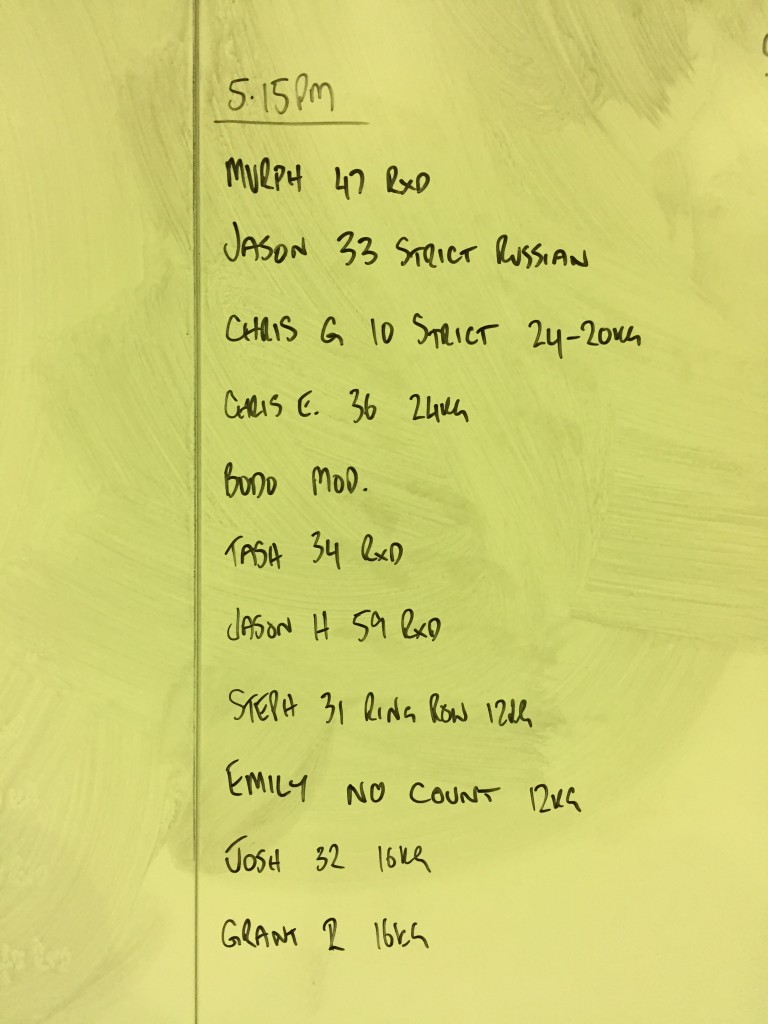 5.15PM
MURPH 47 RXD
JASON 33 STRICT RUSSIAN
CHRIS G 10 STRICT 24-20KG
CHRIS E. 36 24KG
BODO MOD.
TASH 34 RXD
JASON H 59 RXD
STEPH 31 RING ROW 12KG
EMILY NO COUNT 12KG
JOSH 32 16KG
GRANT R 16KG